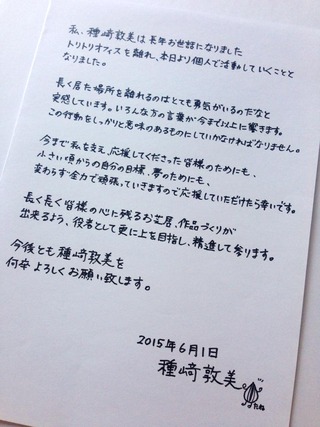 私、種﨑敦美は長年お世話になりました
トリトリオフィスを離れ、本日より個人で活動していくことと
なりました。
長く居た場所を離れるのはとても勇気がいるのだなと
実感しています。いろんな方の言葉が今まで以上に響きます。
この行動をしっかりと意味のあるものにしていかなければなりません。
今まで私を支え、応援してくださった皆様のためにも、
小さい頃からの自分の目標、夢のためにも、
変わらず全力で頑張っていきますので応援していただけたら幸いです。
長く長く皆様の心に残るお芝居、作品づくりが
出来るよう、役者として更に上を目指し、精進して参ります。
今後とも種﨑敦美を
何卒よろしくお願い致します。
2015年6月1日
種﨑敦美
たね